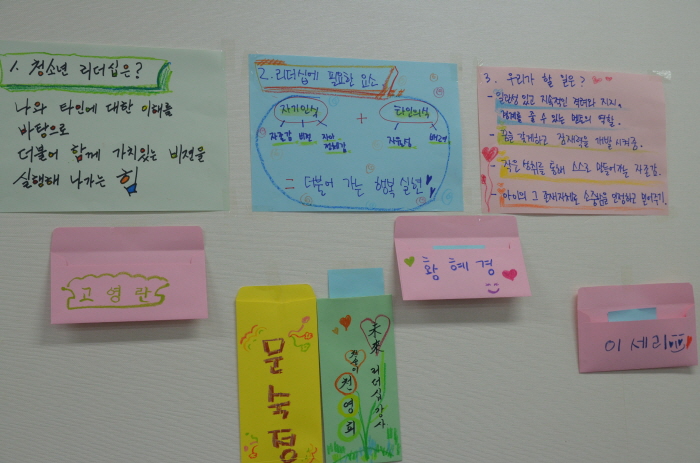 1. 청소년 리더십은?
나와 타인에 대한 이해를
바탕으로
더불어 함께 가치있는 비전을
실행해 나가는 힘
2. 리더십에 필요한 요소
자기인식 + 타인의식
자존감 비전
= 더불어 가는 행복 실현
3. 우리가 할 일은?
- 일관성 있고 지속적인 격려와 지지.
경계를 줄 수 있는 멘토의 역할.
- 꿈을 갖게하고 잠재력을 개발 시켜줌.
- 작은 성취를 통해 스스로 만들어가는 자존감.
- 아이의 그 존재자체로 소중함을 인정하고 믿어주기.
고영란
황혜경
이세리
문숙정
未來 리더십강사
천영희